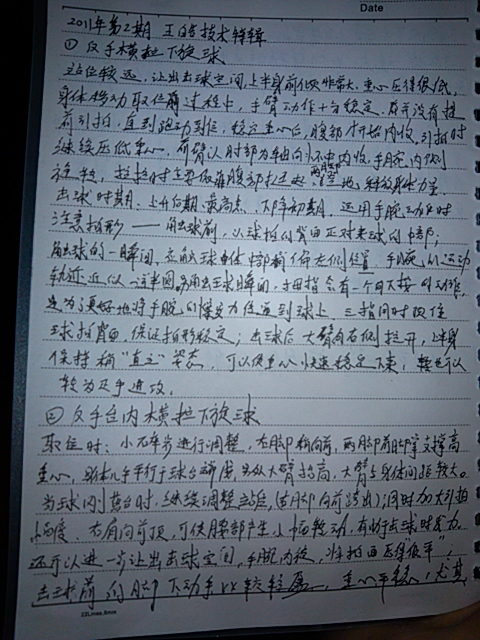 Date
2011年第2期 王皓技术特辑
① 反手横拉下旋球
站位较远,让出击球空间,上半身前倾非常大,重心压得很低,
身体移动取位前过程中,手臂动作十分稳定,并没有提
前引拍,直到跑动到位,稳定重心后,腹部才开始内收,引拍时
继续压低重心,前臂以肘部为轴向怀中内收,手腕内侧
旋转,拉拍时主要依靠腹部 蹬地,释放身体力量
击球时期,上升后期、最高点、下降初期,运用手腕
注意拍形——触击球前,以球拍的背面正对来球的中部;
触击球的一瞬间,在 球体中部 偏左侧位置,手腕的运动
轨迹近似一道半圆。触击球瞬间,手拇指会有一个下按的动作,
是为了更好地将手腕的爆发力作用到球上,三指同时顶住
球拍背面,保证拍形稳定;击球后大臂向右侧拉开,上半身
保持稍"直立"姿态,可以使重心快速稳定下来,
转为正手进攻。
② 反手台内横拉下旋球
取位时:小碎步进行调整,右脚稍向前,两脚前脚掌支撑高
重心,身体几乎平行于球台端线, 大臂抬高,大臂与身体间距较大。
当球
继续调整站位,(右脚向前跨出);同时加大引拍
幅度,右肩向前顶,可使腰部产生小幅转动,有助击球时发力
还可以进一步让出击球空间,手腕内旋,将拍面压得很平",
击球前的脚下动手比较轻盈,重心平稳,尤其